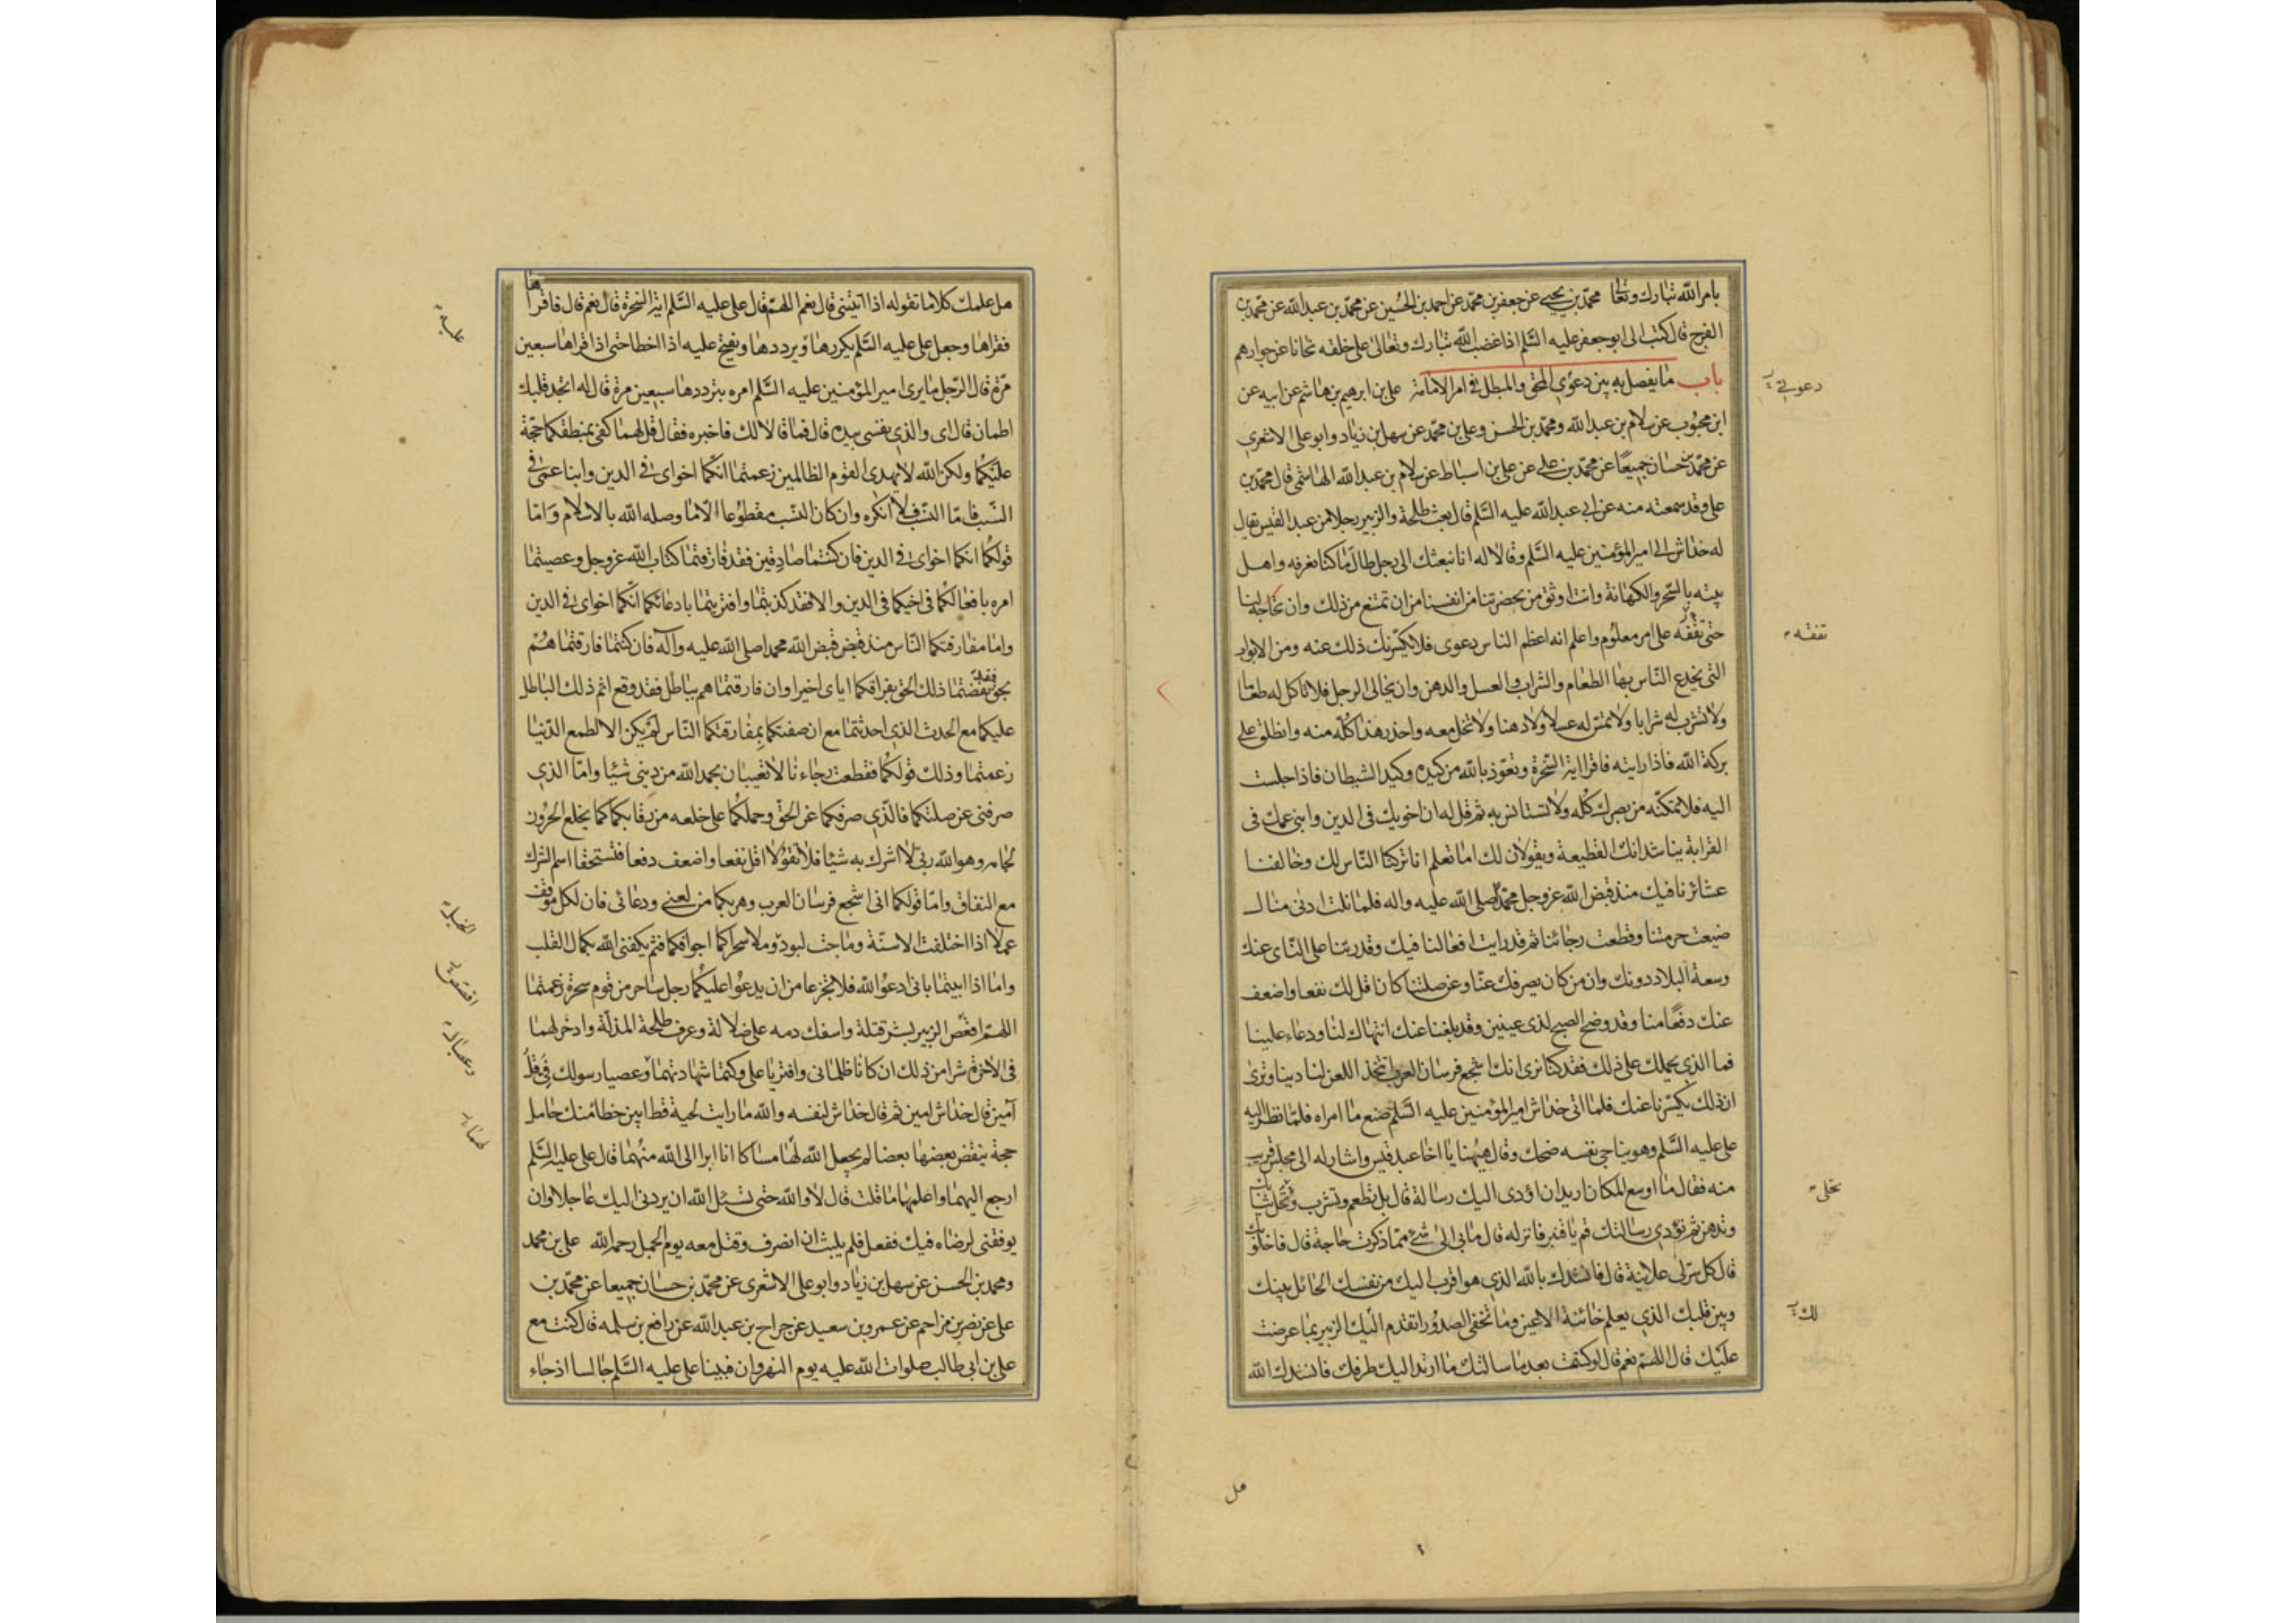 بامر الله تبارك وتعالى محمد بن يحيى عن جعفر بن محمد عن احمد بن الحسين عن محمد بن عبد الله عن محمد بن
الفرج قال كتب الى ابو جعفر عليه السلم اذا غضب الله تبارك وتعالى على خلقه نحانا عن جوارهم
باب ما يفصل به بين دعوى المحق والمبطل فى امر الامامة على بن ابرهيم بن هاشم عن ابيه عن
ابن محبوب عن سلام بن عبد الله ومحمد بن الحسن وعلى بن محمد عن سهل بن زياد وابو على الاشعرى
عن محمد بن حسان جميعا عن محمد بن على عن على بن اسباط عن سلام بن عبد الله الهاشمى قال محمد بن
على وقد سمعته منه عن ابى عبد الله عليه السلم قال بعث طلحة والزبير رجلا من عبد القيس يقال
له خداش الى امير المؤمنين عليه السلم وقالا له انا نبعثك الى رجل طال ما كنا نعرفه واهل
بيته بالسحر والكهانة وانت اوثق من بحضرتنا من انفسنا من ان تمتنع من ذلك وان تحاجه لنا
حتى تقفه على امر معلوم واعلم انه اعظم الناس دعوى فلا يكسرنك ذلك عنه ومن الابواب
التى يخدع الناس بها الطعام والشراب والعسل والدهن وان يخالى الرجل فلا تاكل له طعاما
ولا تشرب له شرابا ولا تمس له عسلا ولا دهنا ولا تخل معه واحذر هذا كله منه وانطلق على
بركة الله فاذا رايته فاقرا اية السخرة وتعوذ بالله من كيده وكيد الشيطان فاذا جلست
اليه فلا تمكنه من بصرك كله ولا تستانس به ثم قل له ان اخويك فى الدين وابنى عمك فى
القرابة يناشدانك القطيعة ويقولان لك اما تعلم انا تركنا الناس لك وخالفنا
عشائرنا فيك منذ قبض الله عز وجل محمدا صلى الله عليه واله فلما نلت ادنى منال
ضيعت حرمتنا وقطعت رجائنا ثم قد رايت افعالنا فيك وقدرتنا على النأى عنك
وسعة البلاد دونك وان من كان يصرفك عنا وعن صلتنا كان اقل لك نفعا واضعف
عنك دفعا منا وقد وضح الصبح لذى عينين وقد بلغنا عنك انتهاك لنا ودعاء علينا
فما الذى يحملك على ذلك فقد كنا نرى انك اشجع فرسان العرب اتتخذ اللعن لنا دينا وترى
ان ذلك يكسرنا عنك فلما اتى خداش امير المؤمنين عليه السلم صنع ما امراه فلما نظر اليه
على عليه السلم وهو يناجى نفسه ضحك وقال هيهنا يا اخا عبد قيس واشار له الى مجلس قريب
منه فقال ما اوسع المكان اريد ان اؤدى اليك رسالة قال بل تطعم وتشرب وتحل ثيابك
وتدهن ثم تؤدى رسالتك قم يا قنبر فانزله قال ما بى الى شئ مما ذكرت حاجة قال فاخلو بك
قال كل سر لى علانية قال فانشدك بالله الذى هو اقرب اليك من نفسك الحائل بينك
وبين قلبك الذى يعلم خائنة الاعين وما تخفى الصدور اتقدم اليك الزبير بما عرضت
عليك قال اللهم نعم قال لو كتمت بعد ما سالتك ما ارتد اليك طرفك فانشدك الله
دعوى
تقفه
تخلى
لك
هل
هل علمك كلاما تقوله اذا اتيتنى قال نعم اللهم قال على عليه السلم اية السخرة قال نعم قال فاقراها
فقراها وجعل على عليه السلم يكررها ويرددها ويفتح عليه اذا اخطا حتى اذا قراها سبعين
مرة قال الرجل ما يرى امير المؤمنين عليه السلم امره بترددها سبعين مرة قال له اتجد قلبك
اطمان قال اى والذى نفسى بيده قال فما قالا لك فاخبره فقال قل لهما كفى بمنطقكما حجة
عليكما ولكن الله لا يهدى القوم الظالمين زعمتما انكما اخواى فى الدين وابنا عمى فى
النسب فاما النسب فلا انكره وان كان النسب مقطوعا الا ما وصله الله بالاسلام واما
قولكما انكما اخواى فى الدين فان كنتما صادقين فقد فارقتما كتاب الله عز وجل وعصيتما
امره بافعالكما فى اخيكما فى الدين والا فقد كذبتما وافتريتما بادعائكما انكما اخواى فى الدين
واما مفارقتكما الناس منذ قبض الله محمدا صلى الله عليه وآله فان كنتما فارقتماهم
بحق فقد نقضتما ذلك الحق بفراقكما اياى اخيرا وان فارقتماهم بباطل فقد وقع اثم ذلك الباطل
عليكما مع الحدث الذى احدثتما مع ان صفتكما بمفارقتكما الناس لم يكن الا لطمع الدنيا
زعمتما وذلك قولكما فقطعت رجاءنا لا تعيبان بحمد الله من دينى شيئا واما الذى
صرفنى عن صلتكما فالذى صرفكما عن الحق وحملكما على خلعه من رقابكما كما يخلع الحرون
لجامه وهو الله ربى لا اشرك به شيئا فلا تقولا اقل نفعا واضعف دفعا فتستحقا اسم الشرك
مع النفاق واما قولكما انى اشجع فرسان العرب وهربكما من لعنى ودعائى فان لكل موقف
عملا اذا اختلفت الاسنة وماجت لبود وملا سحراكما اجوافكما فثم يكفنى الله بكمال القلب
واما اذا ابيتما بانى ادعو الله فلا تجزعا من ان يدعو عليكما رجل ساحر من قوم سحرة زعمتما
اللهم اقعص الزبير بشر قتلة واسفك دمه على ضلالة وعرف طلحة المذلة وادخر لهما
فى الاخرة شرا من ذلك ان كانا ظلمانى وافتريا على وكتما شهادتهما وعصيا رسولك فى قل
آمين قال خداش امين ثم قال خداش لنفسه والله ما رايت لحية قط ابين خطا منك حامل
حجة ينقض بعضها بعضا لم يجعل الله لها مساكا انا ابرا الى الله منهما قال على عليه السلم
ارجع اليهما واعلمهما ما قلت قال لا والله حتى تسئل الله ان يردنى اليك عاجلا وان
يوفقنى لرضاه فيك ففعل فلم يلبث ان انصرف وقتل معه يوم الجمل رحمه الله على بن محمد
ومحمد بن الحسن عن سهل بن زياد وابو على الاشعرى عن محمد بن حسان جميعا عن محمد بن
على عن نصر بن مزاحم عن عمرو بن سعيد عن جراح بن عبد الله عن رافع بن سلمه قال كنت مع
على بن ابى طالب صلوات الله عليه يوم النهروان فبينا على عليه السلم جالسا اذ جاء